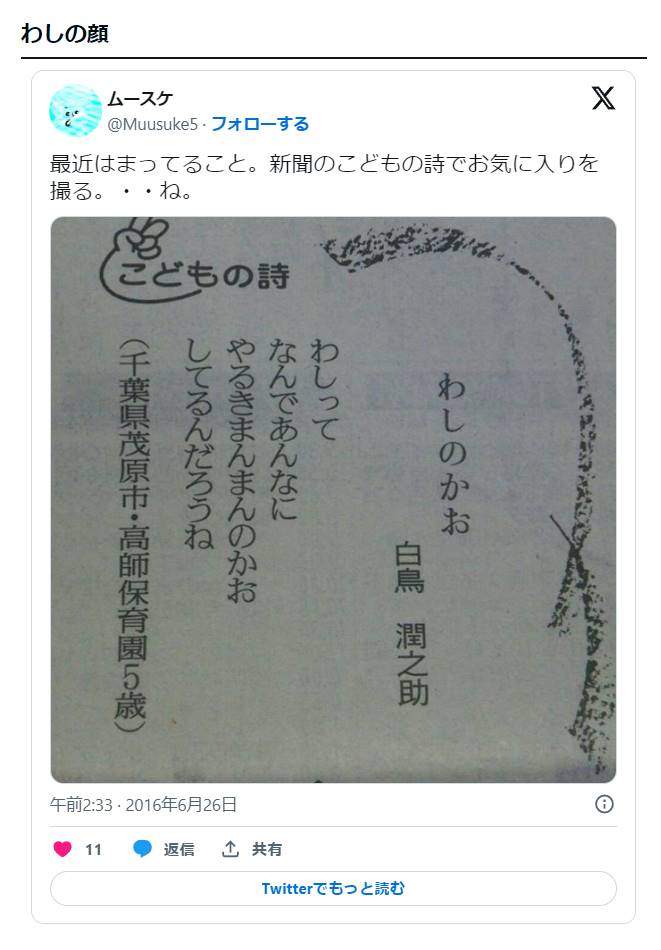 わしの顔
ムースケ
@Muusuke5 · フォローする
最近はまってること。新聞のこどもの詩でお気に入りを
撮る。・・ね。
こどもの詩
わしのかお
白鳥　潤之助
わしって
なんであんなに
やるきまんまんのかお
してるんだろうね
（千葉県茂原市・高師保育園5歳）
午前2:33 · 2016年6月26日
11 返信 共有
Twitterでもっと読む